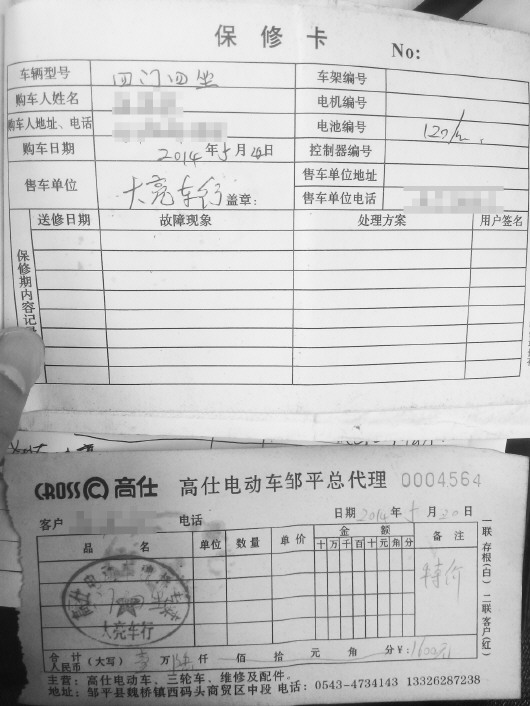 保修卡 No:
车辆型号 四门四坐 车架编号
购车人姓名 电机编号
购车人地址、电话 电池编号 120/
购车日期 2014年5月20日 控制器编号
售车单位 大亮车行 盖章: 售车单位地址
售车单位电话
送修日期 故障现象 处理方案 用户签名
保修期内容记
CROSS 高仕 高仕电动车邹平总代理 0004564
客户 电话 日期 2014年5月20日
品名 单位 数量 单价 金额 备注
十万千百十元角分
特价
大亮车行
合计人民币(大写) 壹万陆仟佰拾元角分 ¥: 1600元
主营: 高仕电动车、三轮车、维修及配件。
地址: 邹平县魏桥镇西码头商贸区中段 电话: 0543-4734143 13326287238
一联存根(白) 二联客户(红)